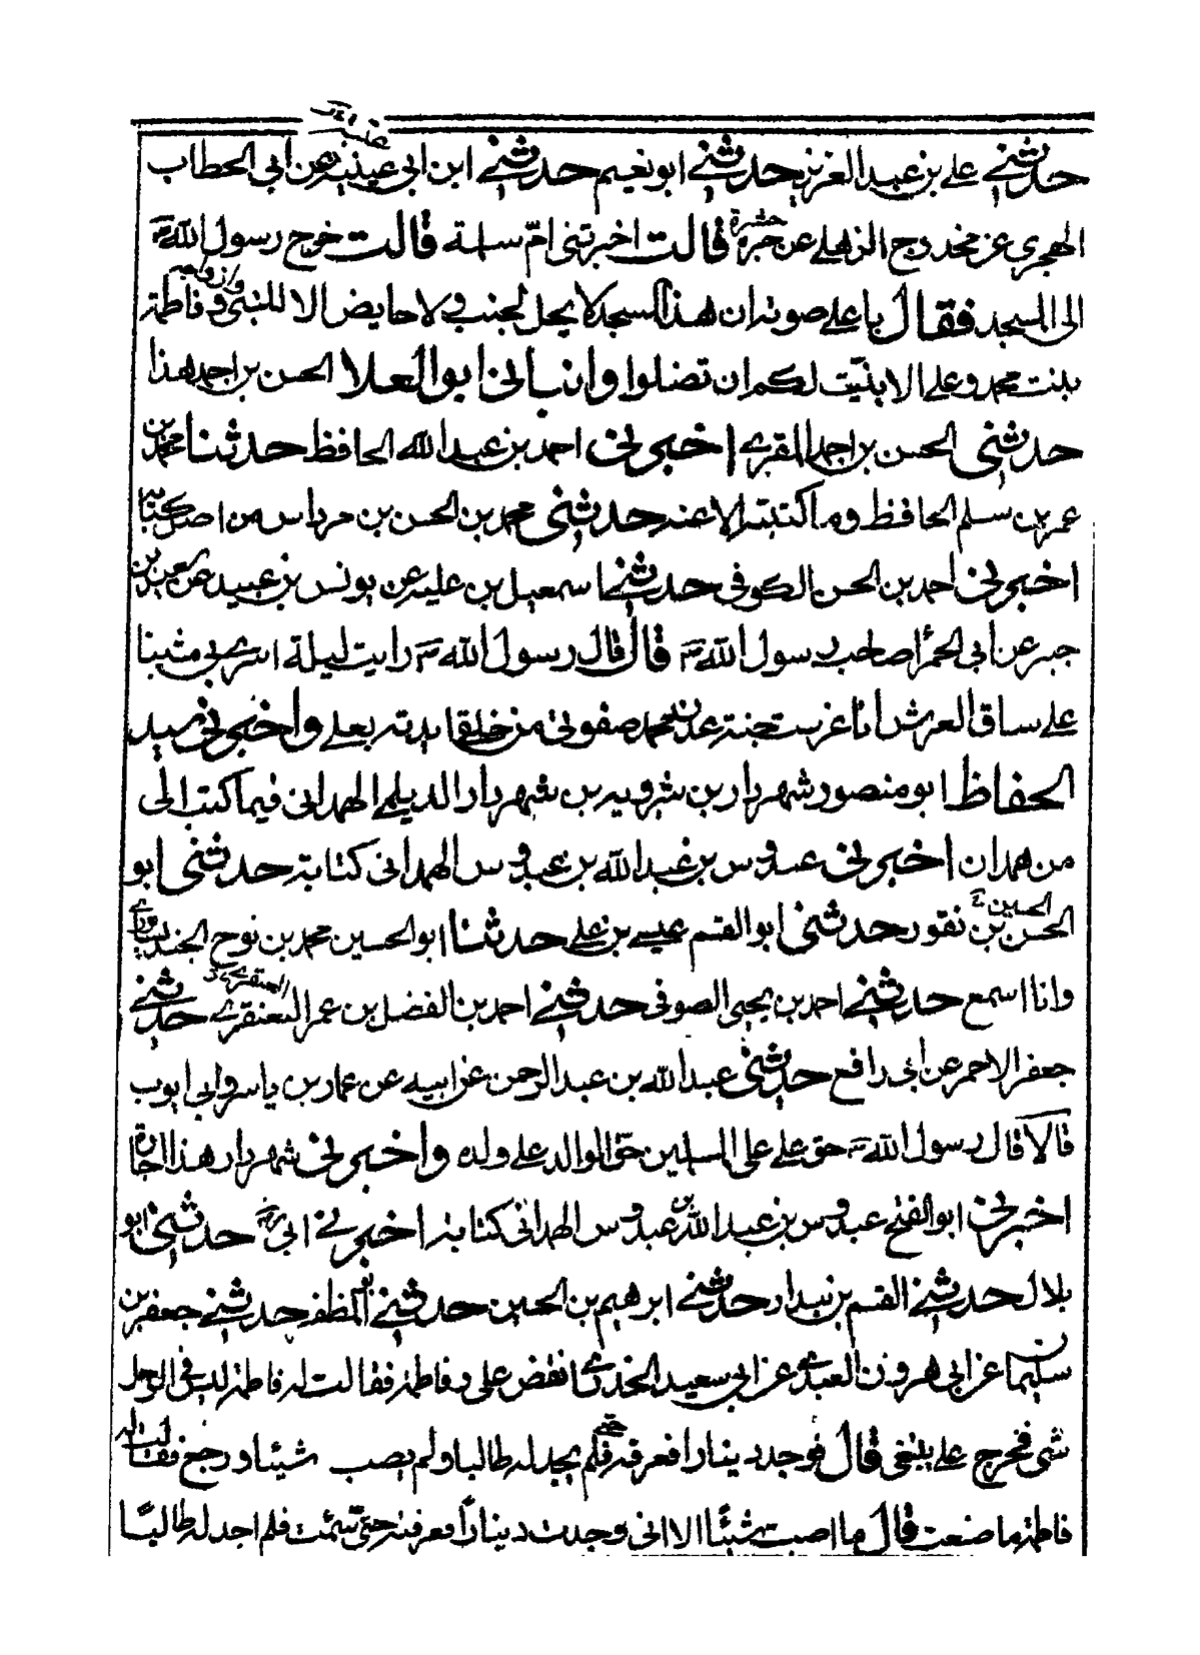 حدثني علي بن عبد العزيز حدثني ابو نعيم حدثني ابن ابي عينيه عن ابي الخطاب
الهجري عن مخدوج الذهلي عن جسرة قالت اخبرتني ام سلمة قالت خرج رسول الله
الى المسجد فقال باعلى صوته ان هذا المسجد لا يحل لجنب ولا حايض الا للنبي وازواجه وفاطمة
بنت محمد وعلي الا بينت لكم ان تضلوا وانباني ابو العلا الحسن بن احمد هذا
حدثني الحسن بن احمد المقري اخبرني احمد بن عبد الله الحافظ حدثنا محمد بن
عمر بن سلم الحافظ وما كتبته الا عنه حدثني محمد بن الحسن بن مرداس من اصل كتابه
اخبرني احمد بن الحسن الكوفي حدثني اسمعيل بن عليه عن يونس بن عبيد عن سعيد بن
جبير عن ابي الحمرا صاحب رسول الله قال قال رسول الله رايت ليلة اسري بي مثبتا
على ساق العرش انا غرست جنة عدن محمد صفوتي من خلقي ايدته بعلي واخبرني سيد
الحفاظ ابو منصور شهردار بن شيرويه بن شهردار الديلمي الهمداني فيما كتب الى
من همدان اخبرني عبدوس بن عبد الله بن عبدوس الهمداني كتابة حدثني ابو
الحسن بن نقور حدثني ابو القسم عيسى بن علي حدثنا ابو الحسين محمد بن نوح الجنديسابوري
وانا اسمع حدثني احمد بن يحيى الصوفي حدثني احمد بن الفضل بن عمر العنقري حدثني
جعفر الاحمر عن ابي رافع حدثني عبد الله بن عبد الرحمن عن ابيه عن عمار بن ياسر وابي ايوب
قالا قال رسول الله حق علي على المسلمين حق الوالد على ولده واخبرني شهردار هذا اجازة
اخبرني ابو الفتح عبدوس بن عبد الله بن عبدوس الهمداني كتابة اخبرني ابي حدثني ابو
بلال حدثني القسم بن بندار حدثني ابرهيم بن الحسين حدثني ابو المظفر حدثني جعفر بن
سليمان عن ابي هرون العبدي عن ابي سعيد الخدري انقض علي وفاطمة فقالت له فاطمة ليس في الرحل
شي فخرج علي يبتغي قال فوجد دينارا فعرفه حتى فلم يجد له طالبا ولم يصب شيئا ورجع فقالت له
فاطمة ما صنعت قال ما اصبت شيئا الا اني وجدت دينارا فعرفته حتى سئمت فلم اجد له طالبا